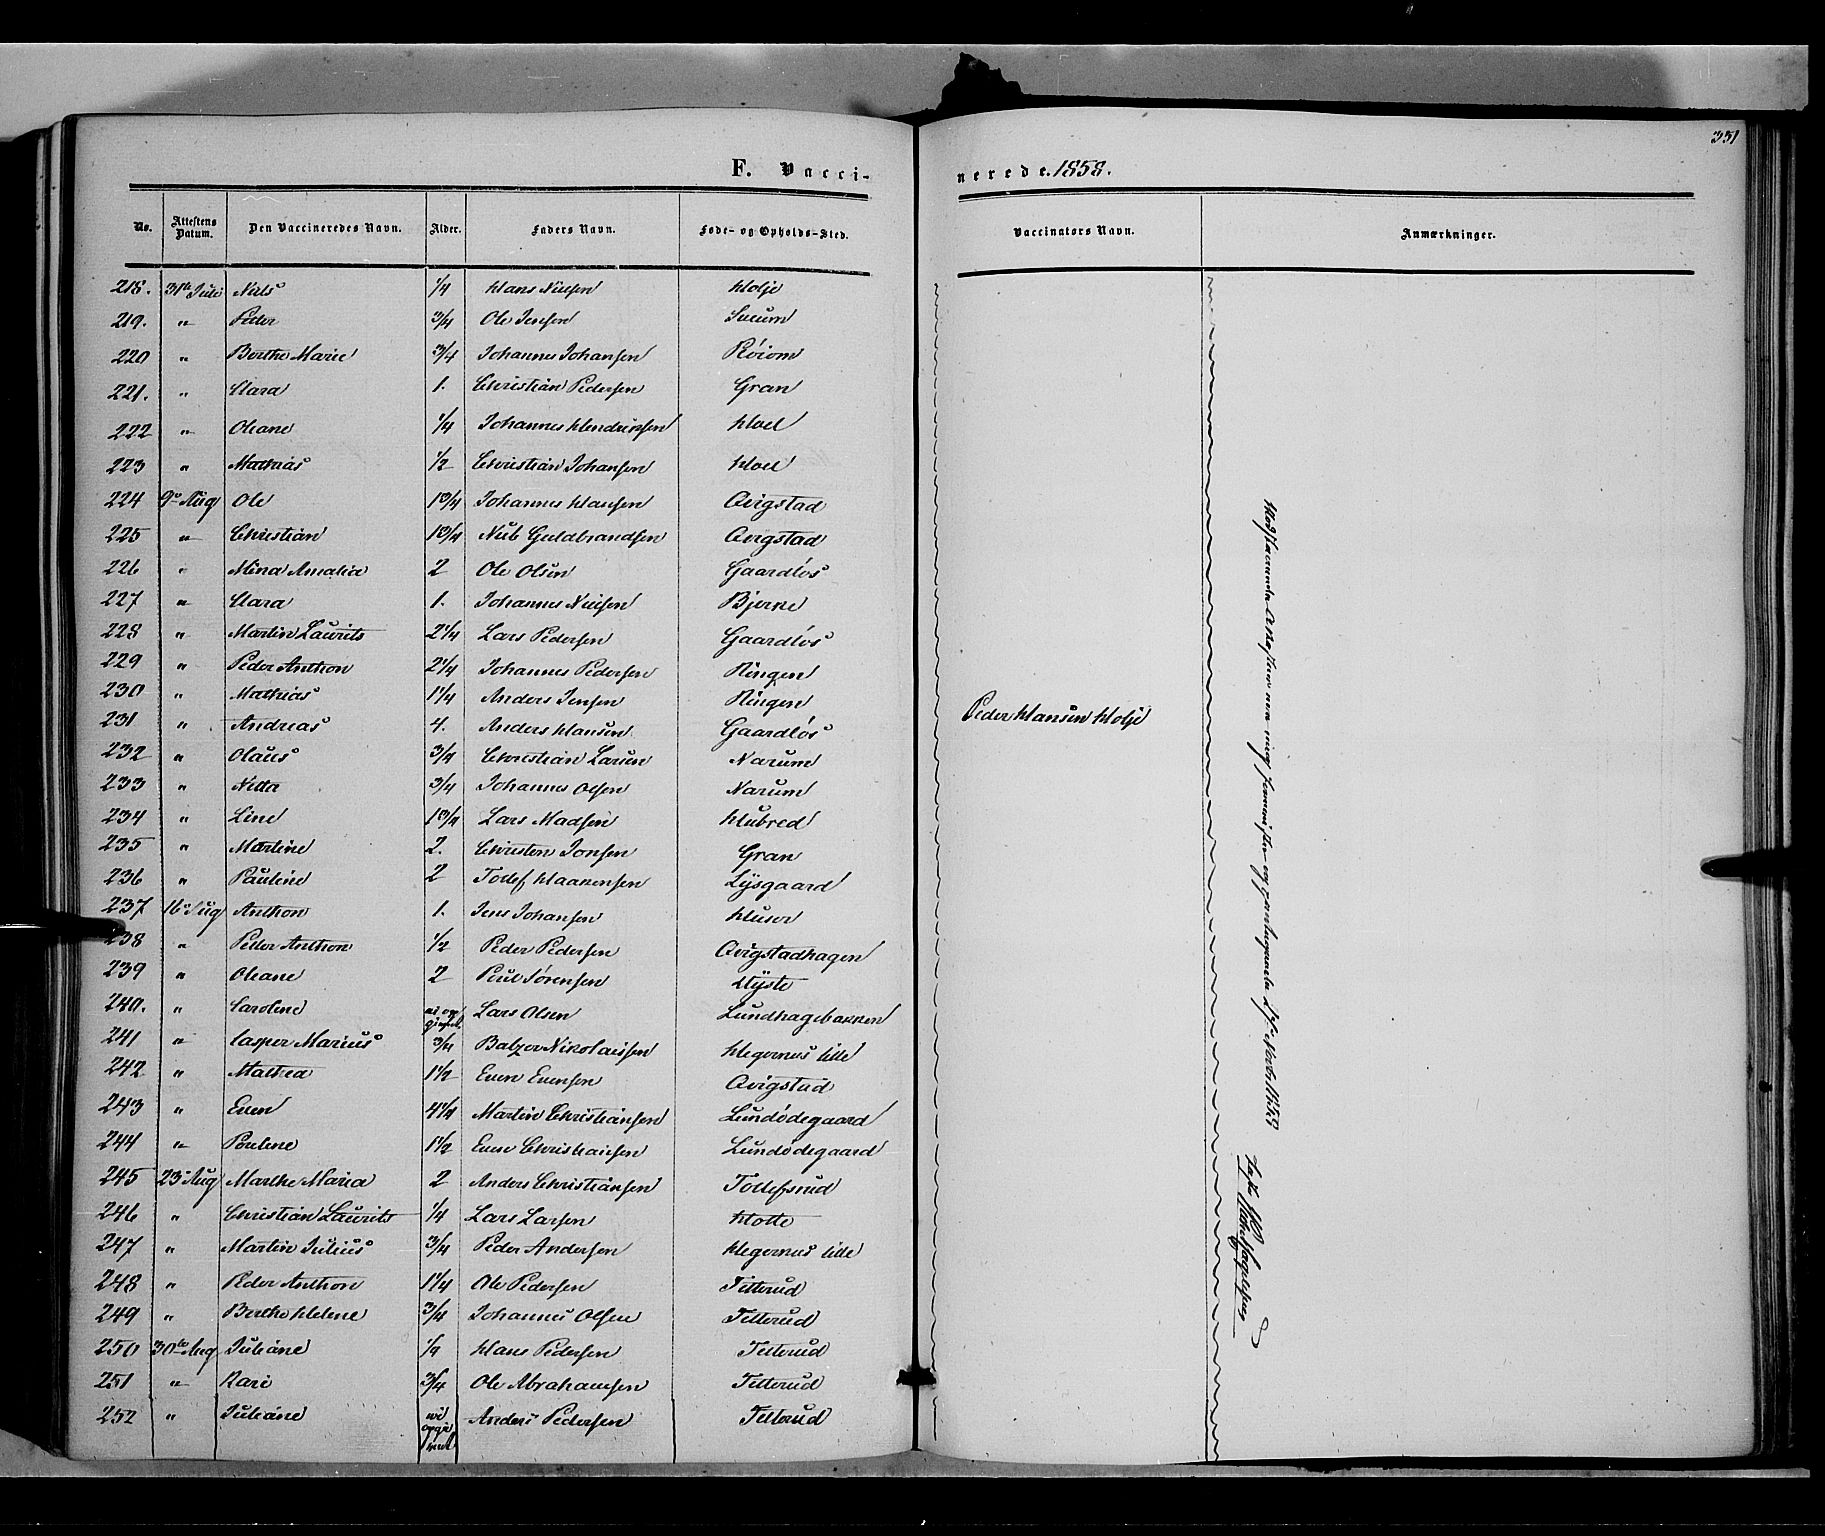 351
F. Vacci-
nerede. 1858.
No. Attestens Datum. Den Vaccineredes Navn. Alder. Faders Navn. Føde- og Opholds-Sted. Vaccinators Navn. Anmærkninger.
218. 31te Juli Niels 1/4 Hans Nielsen Holje
219. " Peder 3/4 Ole Jensen
220 " Berthe Marie 3/4 Johannes Johansen Röiom
221. " Clara 1. Christian Pedersen Gran
222 " Oleane 1/4 Johannes Hendriksen Hoel
223 " Mathias 1/2 Christian Johansen Hoel
224 9de Aug Ole 1 3/4 Johannes Hansen Qvigstad
225 " Christian 1 3/4 Niels Guldbrandsen Qvigstad
226 " Mina Amalia 2 Ole Olsen Gaardlös
227 " Clara 1. Johannes Nielsen Bjerke
228 " Martin Laurits 2 1/4 Lars Pedersen Gaardlös
229 " Peder Anthon 2 1/4 Johannes Pedersen Ringen
230 " Mathias 1 1/4 Anders Jensen Ringen
231 " Andreas 4. Anders Hansen Gaardlös Peder Hansen Holje
232 " Olaus 3/4 Christian Larsen Narum
233 " Netta 3/4 Johannes Olsen Narum
234 " Line 1 3/4 Lars Madsen Hubred
235 " Martine 2. Christen Jonsen Gran
236 " Pauline 2 Tollef Haakensen Lysgaard
237 16de Aug Anthon 1. Jens Johansen Huser
238 " Peder Anthon 1/2 Peder Pedersen Qvigstadhagen
239 " Oleane 2 Poul Sørensen
240. " Caroline Lars Olsen Lundhagebakken
241 " Casper Marius 3/4 Balzer Nikolaissen Hegernus lille
242 " Mathea 1 1/2 Even Evensen Qvigstad
243 " Even 4 1/4 Martin Christiansen Lundödegaard
244 " Pouline 1 1/2 Even Christiansen Lundödegaard
245 23de Aug Marthe Maria 2 Anders Christiansen Tollefsrud
246 " Christian Laurits 1/4 Lars Larsen Holte
247 " Martin Julius 3/4 Peder Andersen Hegernus lille
248 " Peder Anthon 1 1/4 Ole Pedersen Titterud
249 " Berthe Helene 3/4 Johannes Olsen Titterud
250 30te Aug Juliane 1/4 Hans Pedersen Titterud
251 " Kari 3/4 Ole Abrahamsen Titterud
252 " Juliane Anders Pedersen Titterud